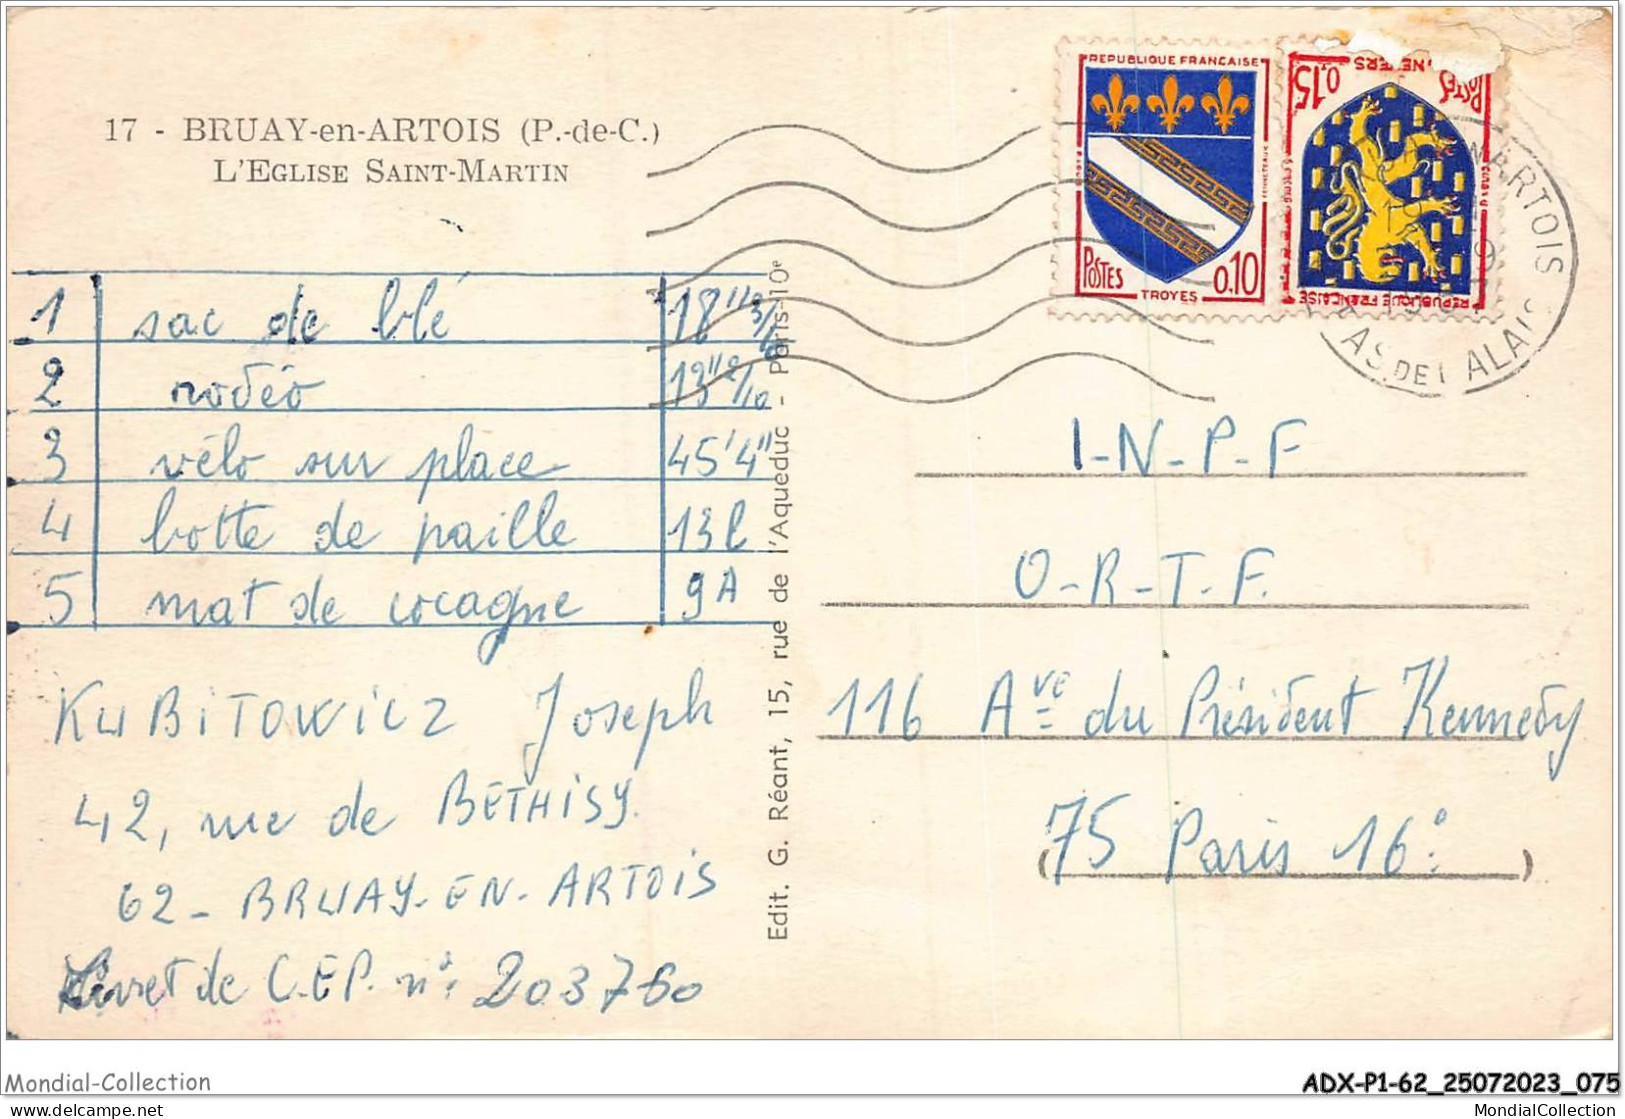 17 - BRUAY-en-ARTOIS (P.-de-C.)
L'EGLISE SAINT-MARTIN
1 sac de blé 18"
2 rodéo 13"
3 vélo sur place 45'4"
4 botte de paille 13
5 mat de cocagne 9A
KUBITOWICZ Joseph
42, rue de BETHISY.
62 - BRUAY-EN-ARTOIS
Livret de C.E.P. n°: 203760
Edit. G. Réant, 15, rue de l'Aqueduc - Paris-10e
REPUBLIQUE FRANÇAISE
POSTES 0,10
TROYES
0,15 POSTES
NEVERS
REPUBLIQUE FRANÇAISE
EN ARTOIS
PAS DE CALAIS
I-N-P-F
O-R-T-F.
116 Ave du Président Kennedy
(75 Paris 16°:)
Mondial-Collection
ADX-P1-62_25072023_075
www.delcampe.net
MondialCollection